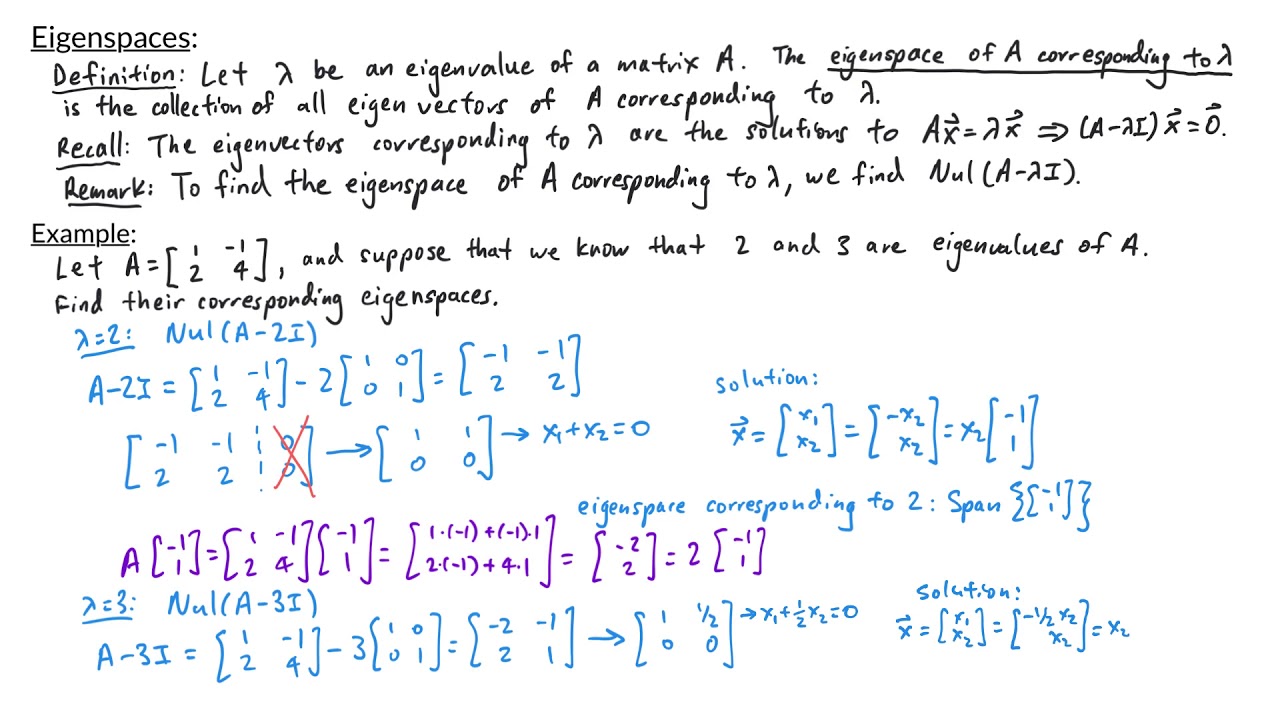 Eigenspaces:
Definition: Let λ be an eigenvalue of a matrix A. The eigenspace of A corresponding to λ
is the collection of all eigenvectors of A corresponding to λ.
Recall: The eigenvectors corresponding to λ are the solutions to Ax⃗ = λx⃗ ⇒ (A-λI)x⃗ = 0⃗.
Remark: To find the eigenspace of A corresponding to λ, we find Nul(A-λI).
Example:
Let A = [1 -1; 2 4], and suppose that we know that 2 and 3 are eigenvalues of A.
Find their corresponding eigenspaces.
λ=2: Nul(A-2I)
A-2I = [1 -1; 2 4] - 2[1 0; 0 1] = [-1 -1; 2 2]
[-1 -1 | 0; 2 2 | 0] → [1 1; 0 0] → x₁+x₂=0
solution:
x⃗ = [x₁; x₂] = [-x₂; x₂] = x₂[-1; 1]
eigenspace corresponding to 2: Span {[-1; 1]}
A[-1; 1] = [1 -1; 2 4][-1; 1] = [1·(-1)+(-1)·1; 2·(-1)+4·1] = [-2; 2] = 2[-1; 1]
λ=3: Nul(A-3I)
A-3I = [1 -1; 2 4] - 3[1 0; 0 1] = [-2 -1; 2 1] → [1 1/2; 0 0] → x₁+½x₂=0
solution:
x⃗ = [x₁; x₂] = [-1/2 x₂; x₂] = x₂